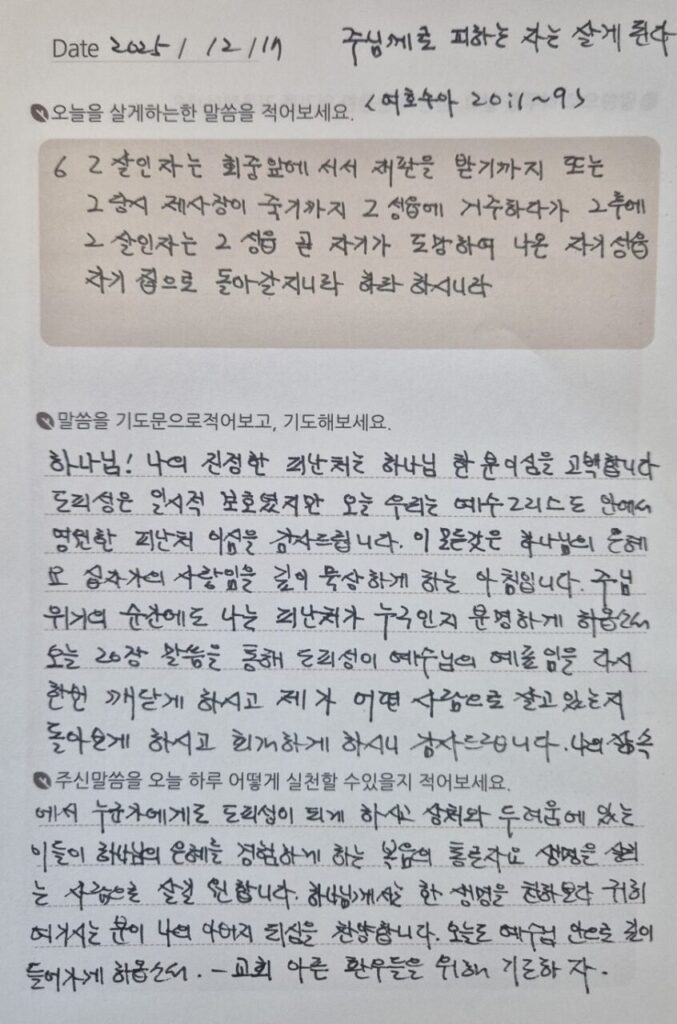 Date 2025 / 12 / 17 주님께로 피하는 자는 살게 된다
오늘을 살게하는한 말씀을 적어보세요. <여호수아 20:1~9>
6 그 살인자는 회중앞에 서서 재판을 받기까지 또는
그당시 제사장이 죽기까지 그 성읍에 거주하다가 그후에
그 살인자는 그 성읍 곧 자기가 도망하여 나온 자기성읍
자기 집으로 돌아갈지니라 하라 하시니라
말씀을 기도문으로적어보고, 기도해보세요.
하나님! 나의 진정한 피난처는 하나님 한 분이심을 고백합니다
도피성은 일시적 보호였지만 오늘 우리는 예수그리스도 안에서
영원한 피난처 이심을 감사드립니다. 이 모든것은 하나님의 은혜
요 십자가의 사랑임을 깊이 묵상하게 하는 아침입니다. 주님
위기의 순간에도 나는 피난처가 누구인지 분명하게 하옵소서
오늘 20장 말씀을 통해 도피성이 예수님의 예표임을 다시
한번 깨닫게 하시고 제가 어떤 사람으로 살고있는지
돌아보게 하시고 회개하게 하시니 감사드립니다. 나의 삶속
주신말씀을 오늘 하루 어떻게 실천할 수있을지 적어보세요.
에서 누군가에게로 도피성이 되게 하시고 상처와 두려움에 있는
이들이 하나님의 은혜를 경험하게 하는 복음의 통로자요 생명을 살리
는 사람으로 살길 원합니다. 하나님께서는 한 생명을 천하보다 귀히
여기시는 분이 나의 아버지 되심을 찬양합니다. 오늘도 예수님 안으로 깊이
들어가게 하옵소서. - 교회 아픈 환우들을 위해 기도하자.